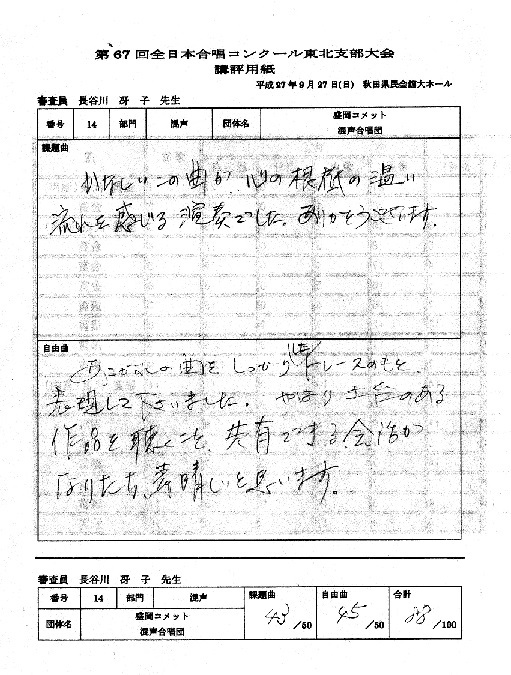 第67回全日本合唱コンクール東北支部大会
講評用紙
平成27年9月27日(日) 秋田県民会館大ホール
審査員 長谷川 冴 子 先生
番号 14 部門 混声 団体名 盛岡コメット
混声合唱団
課題曲
この曲が、心の根底の温い
流れを感じる演奏でした。ありがとうございます。
自由曲
の曲を しっかりした トレースのもと、
表現して下さいました。やはり土台のある
作品を聴くこと、共有できる会話が
なりたち、素晴しいと思います。
審査員 長谷川 冴 子 先生
番号 14 部門 混声 課題曲 自由曲 合計
団体名 盛岡コメット
混声合唱団 43/50 45/50 88/100